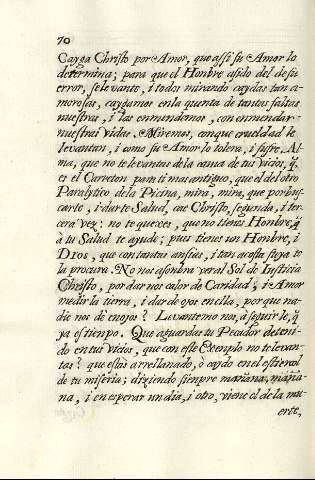 70
Cayga Christo por Amor, que assi su Amor lo
determina; para que el Honbre asido del de su
error, se levante, i todos mirando caydas tan a-
morosas, caygamos en la quenta de tantas faltas
nuestras, i las enmendamos, con enmendar
nuestras vidas. Miremos, con que crueldad le
levantan, i como su Amor lo tolera, i sufre, Al-
ma, que no te levantas de la cama de tus vicios, q̃
es el Carreton para ti mas antiguo, que el del otro
Paralytico de la Picina, mira, mira, que por bus-
carte, i darte Salud, cae Christo, segunda, i ter-
cera vez: no te quexes, que no tienes Honbre, q̃
a tu Salud te ayude; pues tienes un Honbre, i
Dios, que con tantas ansias, i tan a costa suya te
la procura. No nos asonbra ver al Sol de Iusticia
Christo, por dar nos calor de Caridad, i Amor
medir la tierra, i dar de ojos en ella, porque na-
die nos dè enojos? Levantemo nos, à seguir le, q̃
ya es tienpo. Que aguardas tu Pecador deteni-
do en tus vicios, que con este Exenplo no te levan-
tas? que estàs arrellanado, ò caydo en el estiercol
de tu miseria; diziendo sienpre mañana, maña-
na, i en esperar un dia, i otro, viene el de la mu-
erte,